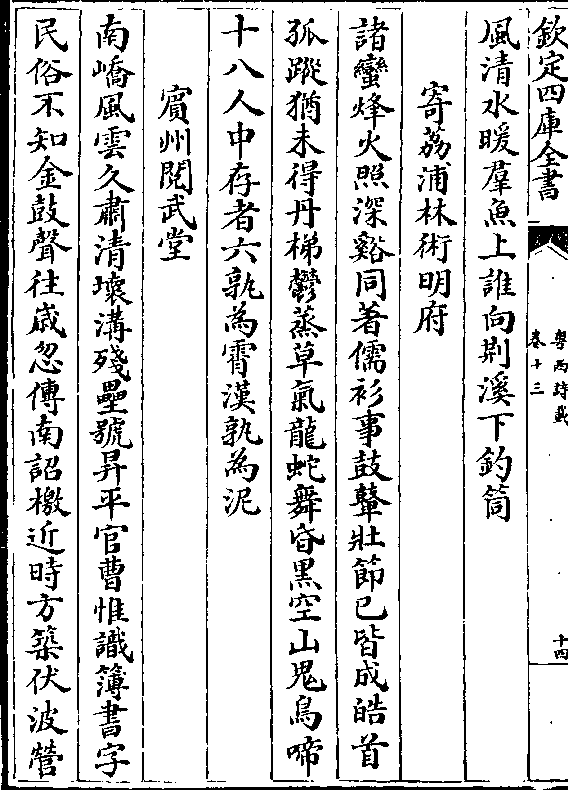 欽定四庫全書
粤西詩載
卷十三
十四
風清水暖羣魚上誰向荆溪下釣筒
寄荔浦林術明府
諸蠻烽火照深谿同著儒衫事鼓鼙壯節已皆成皓首
孤蹤猶未得丹梯鬱蒸草氣龍蛇舞昏黑空山鬼鳥啼
十八人中存者六孰為霄漢孰為泥
賔州閱武堂
南嶠風雲久肅清壞溝殘壘號昇平官曹惟識簿書字
民俗不知金鼓聲往嵗忽傳南詔檄近時方築伏波營